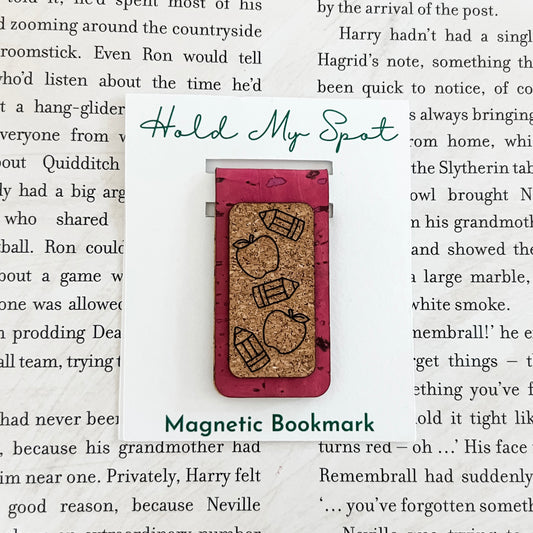 told it, he'd spent most of his
zooming around the countryside
broomstick. Even Ron would tell
who'd listen about the time he'd
t a hang-glider
everyone from
bout Quidditch
had a big arg
who shared
ball. Ron could
about a game w
one was allowed
prodding Dea
all team, trying t
had never been
, because his grandmother had
im near one. Privately, Harry felt
good reason, because Neville
an extraordinary number
Hold My Spot
Magnetic Bookmark
by the arrival of the post.
Harry hadn't had a singl
Hagrid's note, something th
been quick to notice, of co
s always bringing
rom home, whi
the Slytherin tab
owl brought N
m his grandmoth
and showed the
a large marble,
white smoke.
emembrall!' he e
get things – t
ething you've f
old it tight like
turns red – oh …' His face
Remembrall had suddenly
'… you've forgotten someth